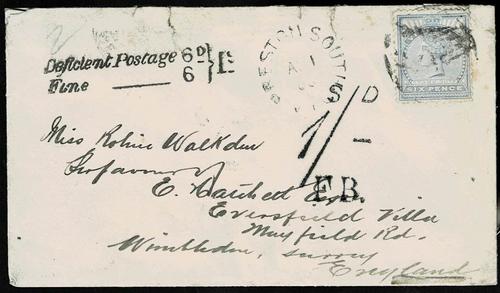 Deficient Postage 6D
Fine —— 6
PRESTON SOUTH
A
1
SIX PENCE
S D
1/-
F.B.
Miss Robine Walkden
E. Hatchett Esq
Eversfield Villa
Mayfield Rd.
Wimbledon, Surrey
England